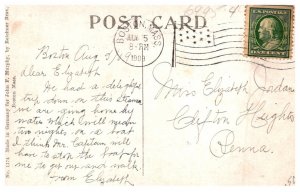 POST CARD
BOSTON, MASS.
AUG 5
8-PM
1909
Boston Aug 5/09
Dear Elizabeth
We had a delightful
trip down on this steamer
We are going home by
water which will mean
two nights on a boat
I think Mr. Captain will
have to stop the boat for
me to get up and walk
from Elizabeth
Miss Elizabeth
Clifton Heights
Penna.
No. 1174 Made in Germany for John F. Murphy, by Reichner Bros.